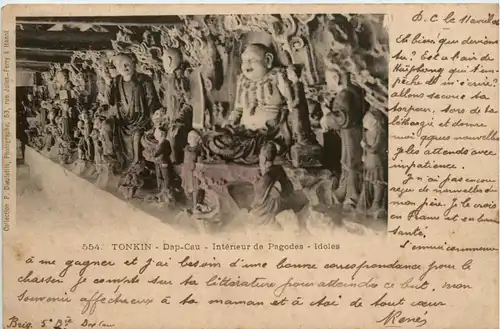 D. C le 11 avril 06
Eh bien que deviens
tu? Est-ce l'air de
Haïphong qui t'em
pêche d'écrire?
allons secoue ta
torpeur, sors de ta
léthargie et donne
moi qques nouvelles
Je les attends avec
impatience.
Je n'ai pas encore
reçu de nouvelles de
mon père. Je le crois
en France et en bonne
santé.
S'ennui commence
à me gagner et j'ai besoin d'une bonne correspondance pour le
chasser. Je compte sur ta littérature pour atteindre ce but, mon
souvenir affectueux à ta maman et à toi de tout cœur
René
554. TONKIN - Dap-Cau - Intérieur de Pagodes - Idoles
Collection P. Dieulefils, Photographe, 53, rue Jules-Ferry à Hanoï
Brig. 5e Dap Cau